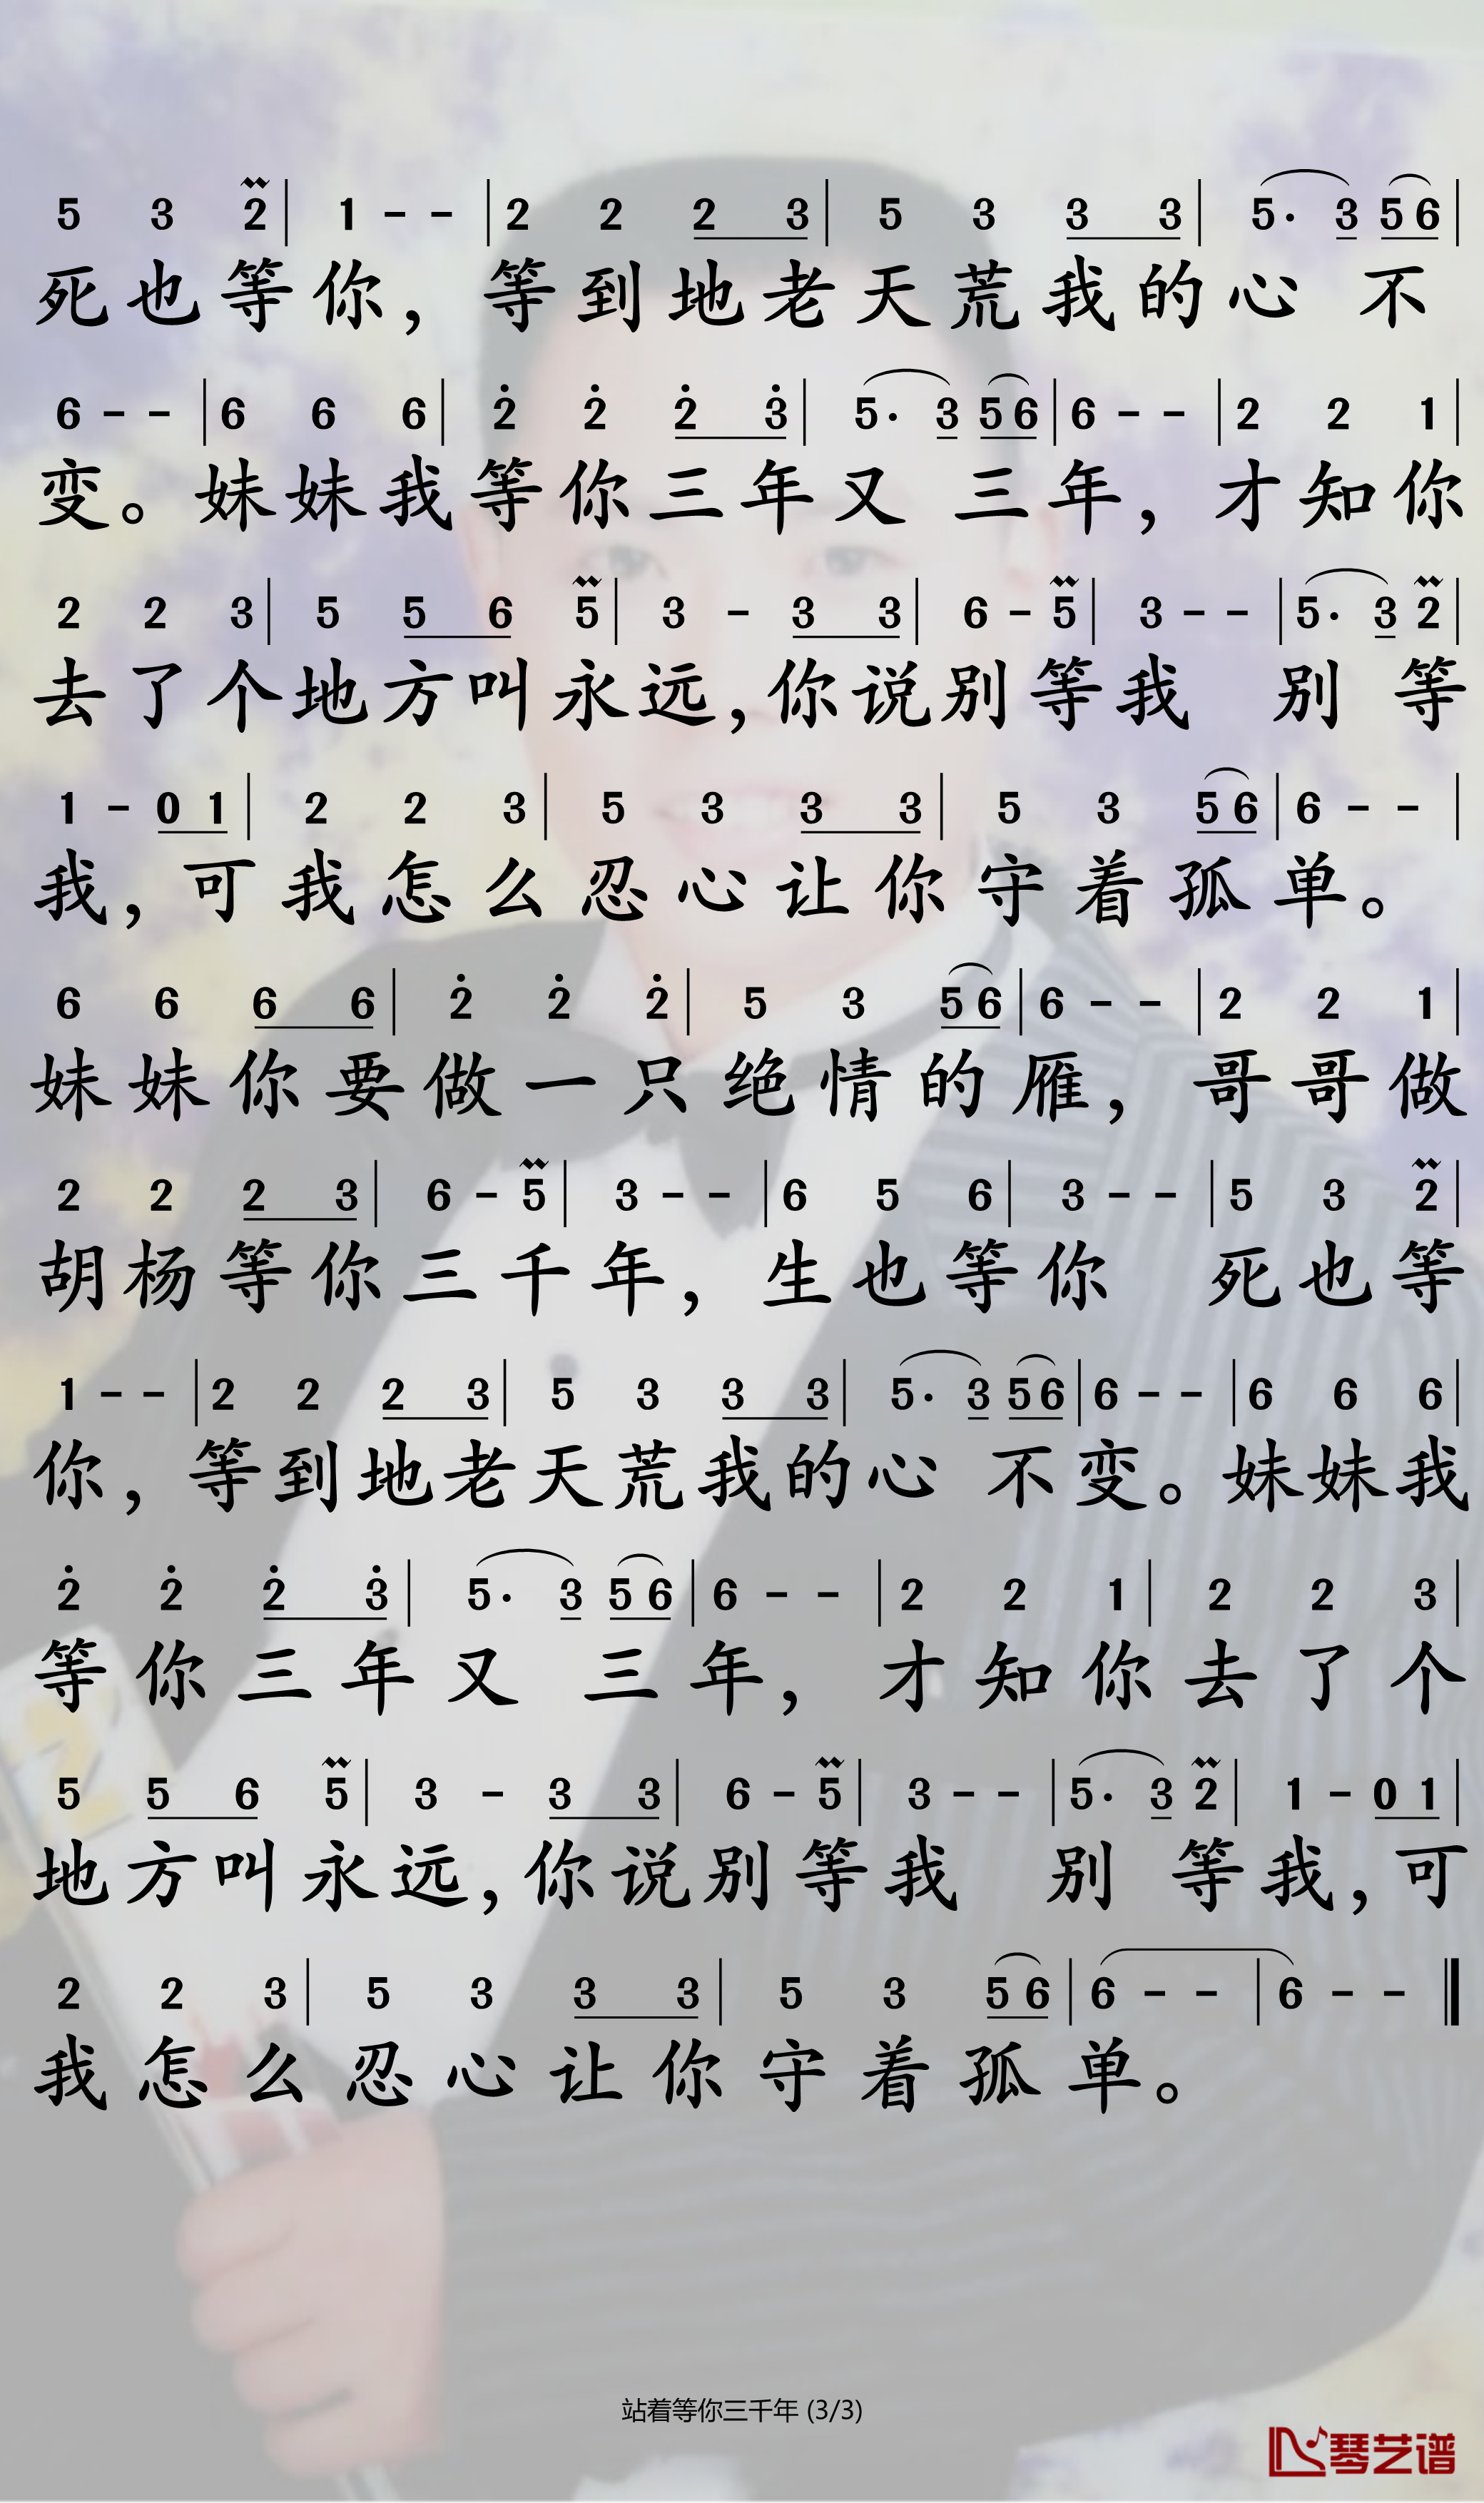 5 3 2 | 1 - - | 2 2 2 3 | 5 3 3 3 | 5· 3 5 6 |
死也等你，等到地老天荒我的心 不
6 - - | 6 6 6 | 2̇ 2̇ 2̇ 3̇ | 5· 3 5 6 | 6 - - | 2 2 1 |
变。妹妹我等你三年又 三年，才知你
2 2 3 | 5 5 6 5 | 3 - 3 3 | 6 - 5 | 3 - - | 5· 3 2 |
去了个地方叫永远，你说别等我 别 等
1 - 0 1 | 2 2 3 | 5 3 3 3 | 5 3 5 6 | 6 - - |
我，可我怎么忍心让你守着孤单。
6 6 6 6 | 2̇ 2̇ 2̇ | 5 3 5 6 | 6 - - | 2 2 1 |
妹妹你要做一只绝情的雁，哥哥做
2 2 2 3 | 6 - 5 | 3 - - | 6 5 6 | 3 - - | 5 3 2 |
胡杨等你三千年，生也等你 死也等
1 - - | 2 2 2 3 | 5 3 3 3 | 5· 3 5 6 | 6 - - | 6 6 6 |
你，等到地老天荒我的心 不变。妹妹我
2̇ 2̇ 2̇ 3̇ | 5· 3 5 6 | 6 - - | 2 2 1 | 2 2 3 |
等你三年又 三年，才知你去了个
5 5 6 5 | 3 - 3 3 | 6 - 5 | 3 - - | 5· 3 2 | 1 - 0 1 |
地方叫永远，你说别等我 别 等我，可
2 2 3 | 5 3 3 3 | 5 3 5 6 | 6 - - | 6 - - ‖
我怎么忍心让你守着孤单。
站着等你三千年 (3/3)
琴艺谱